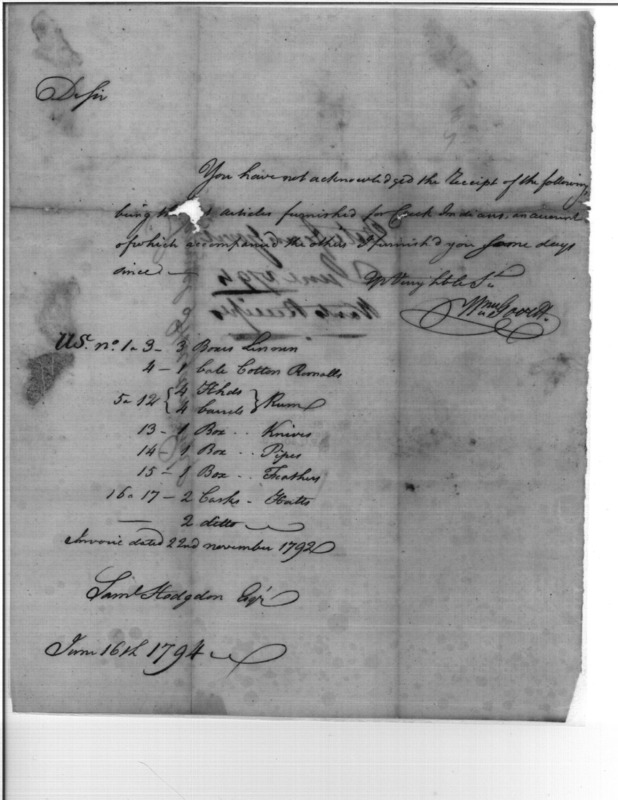 Dr Sir
You have not acknowledged the Receipt of the following,
being articles furnished for Creek Indians, an account
of which accompanied the others I furnish'd you some days
since
Yr Very hble St
Wm Govett.
US. no. 1 a 3 - 3 Boxes Linnen
4 - 1 bale Cotton Romalls
5 a 12 { 4 Hhds
4 barrels } Rum
13 - 1 Box .. Knives
14 - 1 Box .. Pipes
15 - 1 Box .. Feathers
16 a 17 - 2 Casks - Hatts
2 ditto
Invoice dated 22nd november 1792
Saml Hodgdon Esqr
June 16th 1794
June 1794
Wants Receipts